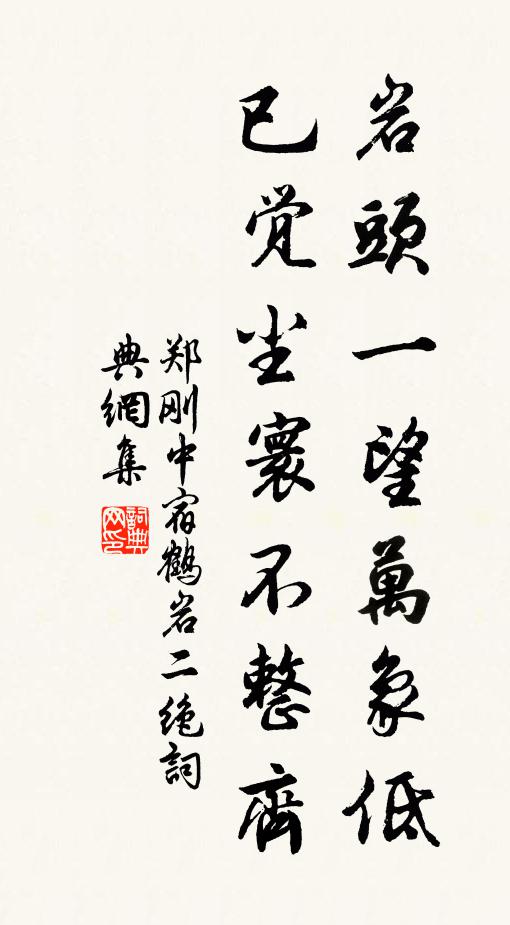 岩頭一望萬象低
已觉尘寰不整齊
郑刚中宿鶴岩二绝詞
典網集
詞典网印